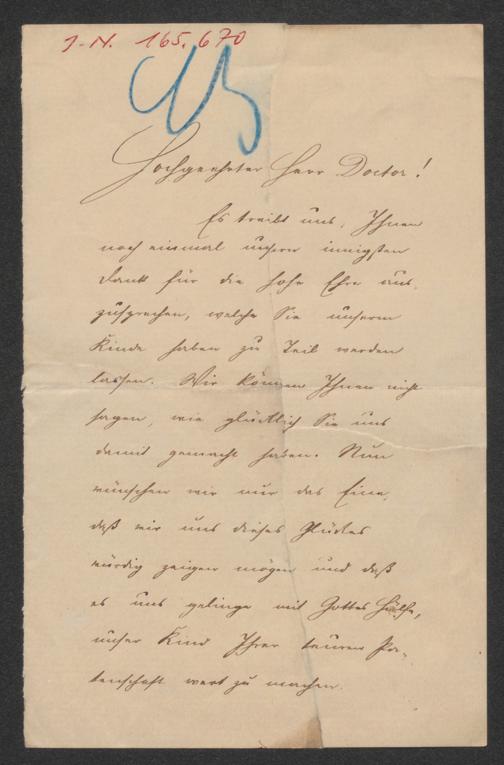 I.-N. 165.670
Hochgeehrter Herr Doctor!
Es treibt uns, Ihnen
noch einmal unsern innigsten
Dank für die hohe Ehre aus-
zusprechen, welche Sie unserm
Kinde haben zu Teil werden
lassen. Wir können Ihnen nicht
sagen, wie glücklich Sie uns
damit gemacht haben. Nun
wünschen wir nur das Eine,
daß wir uns dieses Glückes
würdig zeigen mögen und daß
es uns gelinge mit Gottes Hülfe,
unser Kind Ihrer teuren Pa-
tenschaft wert zu machen.